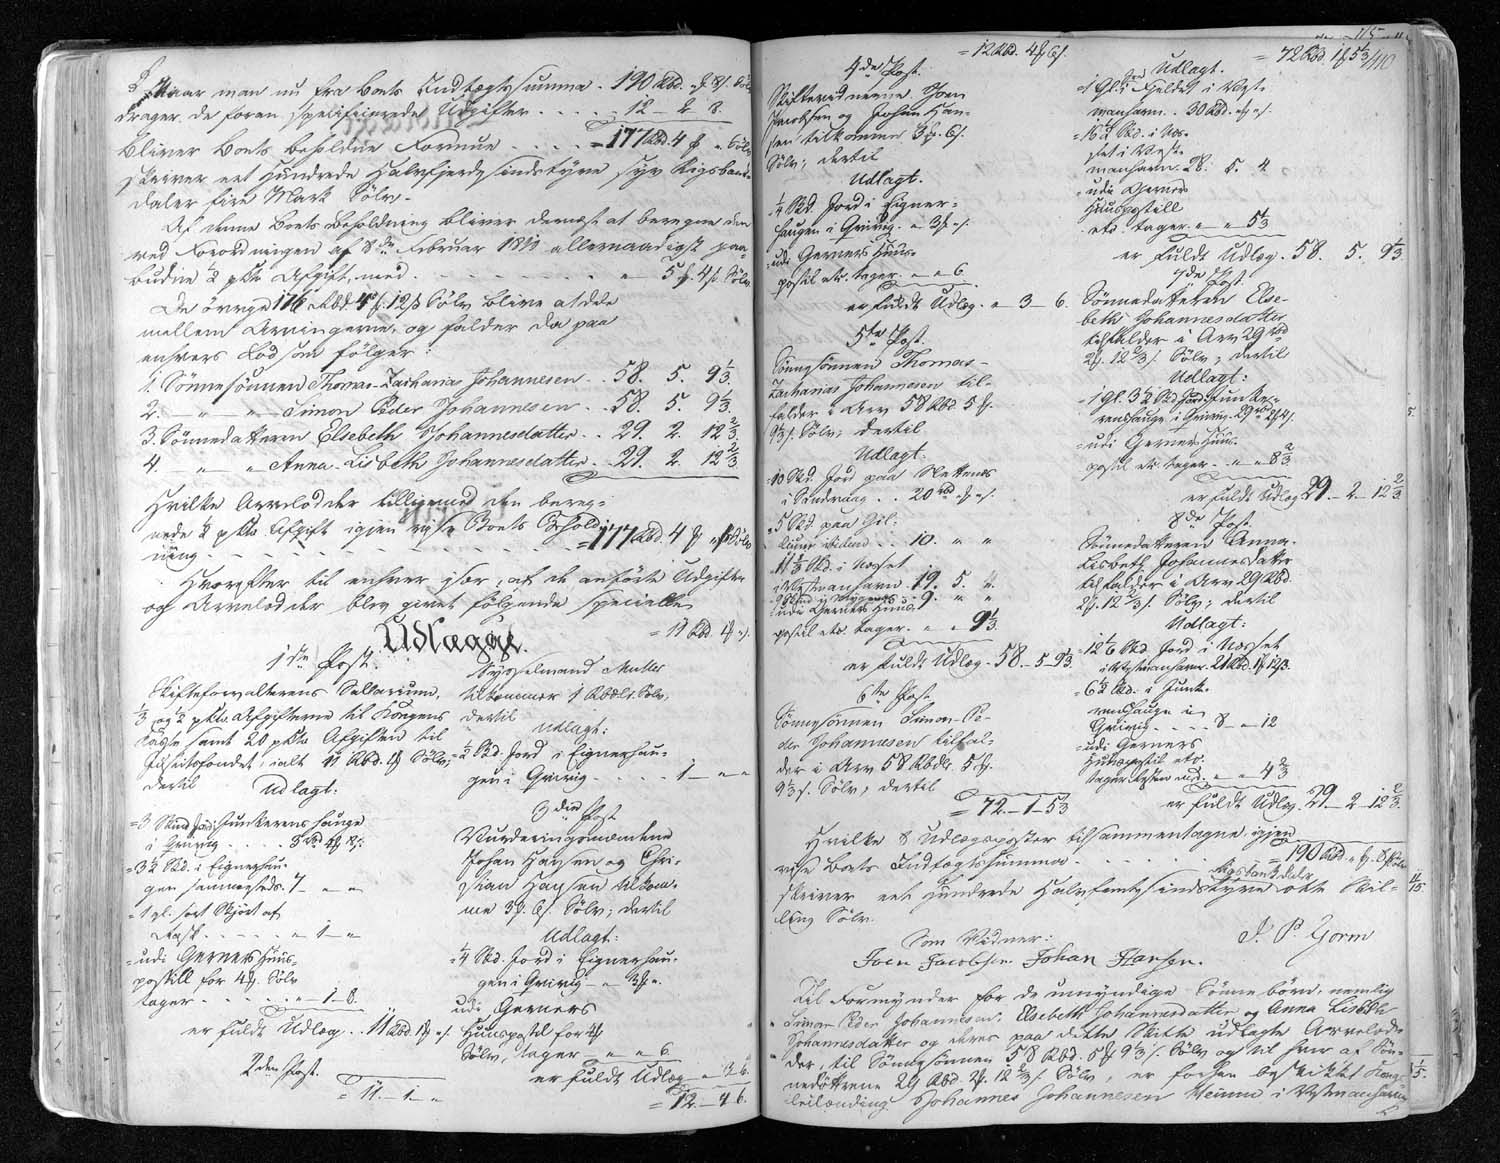 Naar man nu fra Boets Indtægtssumma 190 Rbd. " β 8 s. Sølv
drager de foran specificerede Udgifter . . . . 12 - 2 - 8.
Bliver Boets beholdne Formue . . . . = 177 Rbd. 4 β " Sølv
skriver eet Hundrede Halvfjerdsindstyve syv Rigsbank-
daler fire Mark Sølv.
Af denne Boets Beholdning bliver dernæst at beregne den
ved Forordningen af 8de Februar 1810 allernaadigst paa-
budne ½ pCto Afgift, med . . . . . " - 5 β. 4 s. Sølv
De øvrige 176 Rbd. 4 β. 12 s. Sølv blive at dele
mellem Arvingerne, og falder da paa
enhvers Lod som følger:
1. Sønnesønnen Thomas Zacharias Johannesen . . 58. 5. 9⅓.
2. — " — " — Simon Peder Johannesen . . 58. 5. 9⅓.
3. Sønnedatteren Elsebeth Johannesdatter . . 29. 2. 12⅔.
4. — " — " Anna Lisbeth Johannesdatter . . 29. 2. 12⅔.
Hvilke Arvelodder tilligemed den bereg-
nede ½ pCto Afgift igjen vise Boets Behold-
ning - - - - = 177 Rbd. 4 β " s Sølv
Hvorefter til enhver især, af de anførte Udgifter
og Arvelodder blev givet følgende specielle
Udlægge.
1ste Post.
Skifteforvalterens Sallarium,
⅓ og ½ pCto Afgifterne til Kongens
Kasse samt 20 pCto Afgiften til
Justitsfondet, ialt 11 Rbd. 1 β Sølv,
dertil Udlagt:
= 3 Skind Jord i Junkerenshauge
i Qvivig . . . . 3 Rbd. 4 β. 8 s.
= 3½ Skd. i Eignerhau-
gen sammesteds. 7 — " — "
= 1 gl. sort Skjørt af
Rask . . . . . " — 1 — "
= udi Gerners Huus-
postill for 4 β. Sølv
tager . . . . . . " — 1 - 8.
er fuldt Udlæg . . 11 Rbd. 1 β " s.
2den Post.
= 11. — 1 — "
= 11 Rbd. 1 β " s.
Sysselmand Müller
tilkommer 1 Rbdlr. Sølv,
dertil Udlagt:
= ½ Skd. Jord i Eignerhau-
gen i Qvivig . . . . 1 — " — "
3die Post
Vurderingsmændene
Johan Hansen og Chri-
stian Hansen tilkom-
me 3 β. 6 s. Sølv; dertil
Udlagt:
= ¼ Skd. Jord i Eignerhau-
gen i Qvivig — " 3 β ".
udi Gerners
Huuspostil for 4 β
Sølv, tager — " " 6.
er fuldt Udlæg — " 3. 6.
= 12. — 4. 6.
= 12 Rbd. 4 β. 6 s.
4de Post.
Skiftevidnerne Joen
Jacobsen og Johan Han-
sen tilkommer 3 β. 6 s.
Sølv; dertil
Udlagt.
= ¼ Skd. Jord i Eigner-
haugen i Qvivig. " 3 β " s.
= udi Gerners Huus-
postil etc. tager . " " 6.
er fuldt Udlæg . " 3 — 6.
5te Post.
Sønnesønnen Thomas
Zacharias Johannesen til-
falder i Arv 58 Rbd. 5 β.
9⅓ s. Sølv; dertil
Udlagt.
= 10 Skd. Jord paa Slettenes
i Sandvaag . . 20 Rbd. " β " s.
= 5 Skd. paa Gil-
ibidem . . 10. " "
= 11⅔ Skd. i Nesset
i Westmanhavn . 19. 5. "
9. " "
= udi Gerners Huus-
postil etc. tager . " " 9⅓.
er fuldt Udlæg . 58 — 5 — 9⅓.
6te Post.
Sønnesønnen Simon Pe-
der Johannesen tilfal-
der i Arv 58 Rbdlr. 5 β.
9⅓ s. Sølv; dertil
= 72 — 1 — 5⅓
= 72 Rbd. 1 β 5⅓
110
Udlagt.
= 1 Gl. Gjeldet i Vest-
manhavn . 30 Rbd. " β " s.
= 16 Skd. i Nes-
set i Vest-
manhavn. 28. 5. 4
= udi Gerners
Huuspostill
etc. tager . — " — " 5⅓
er fuldt Udlæg . 58. 5. 9⅓.
7de Post.
Sønnedatteren Else-
beth Johannesdatter
tilfalder i Arv 29 Rbd
2 β. 12⅔ s. Sølv; dertil
Udlagt:
= 1 gl. 3½ Skd. Jord i Junke-
renshauge i Qvivig. 29 Rbd. 2 β 4 s.
= udi Gerners Huus-
postil etc. tager . — " — " 8⅔
er fuldt Udlæg 29 — 2 — 12⅔.
8de Post.
Sønnedatteren Anna-
Lisbeth Johannesdatter
tilfalder i Arv 29 Rbd.
2 β. 12⅔ s. Sølv; dertil
Udlagt:
= 12⅙ Skd. Jord i Nesset
i Westmanhavn. 21 Rbd. 1 β. 12 s.
= 6½ Skd. i Junke-
renshauge i
Qvivig . . . . 8 — " — 12
= udi Gerners
Huuspostil etc.
tager . — " — " 4⅔
er fuldt Udlæg . 29 — 2 — 12⅔.
Hvilke 8 Udlægsposter tilsammentagne igjen
vise Boets Indtægtssumma . . . . . = 190 Rbd. " β. 8 s. Sølv
Rigsbankdaler
skriver eet Hundrede Halvfemsindstyve otte Skil-
ling Sølv.
Som Vidner: J. P. Gorm
Joen Jacobsen. Johan Hansen.
Til Formynder for de umyndige Sønnebørn, nemlig
Simon Peder Johannesen, Elsebeth Johannesdatter og Anna Lisbeth
Johannesdatter og deres paa dette Skifte udlagte Arvelod-
der, til Sønnesønnen 58 Rbd. 5 β 9⅓ s. Sølv og til hver af Søn-
nedøttrene 29 Rbd. 2 β. 12⅔ s. Sølv, er Kongs-
leilænding Johannes Johannesen i Westmanhavn